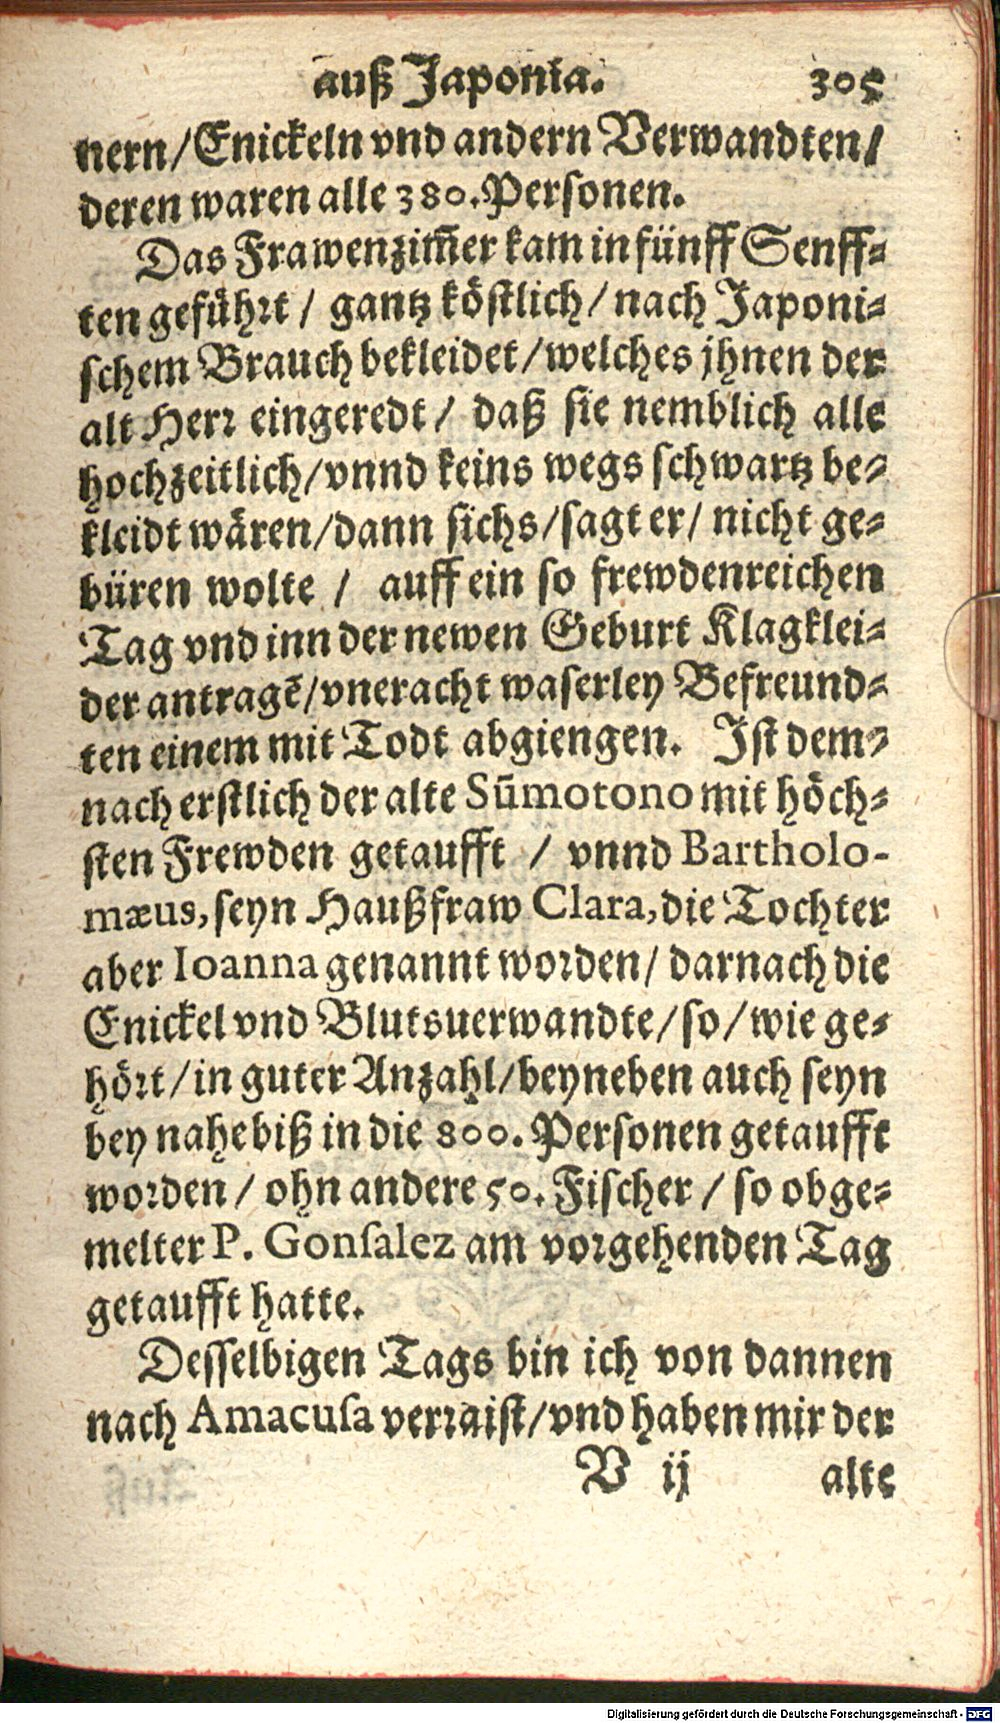 auß Japonia. 305
nern/Enickeln vnd andern Verwandten/
deren waren alle 380. Personen.
Das Frawenzim̃er kam in fünff Senff-
ten geführt / gantz köstlich / nach Japoni-
schem Brauch bekleidet / welches jhnen der
alt Herr eingeredt / daß sie nemblich alle
hochzeitlich / vnnd keins wegs schwartz be-
kleidt wären / dann sichs / sagt er / nicht ge-
büren wolte / auff ein so frewdenreichen
Tag vnd inn der newen Geburt Klagklei-
der antragẽ / vneracht waserley Befreund-
ten einem mit Todt abgiengen. Ist dem-
nach erstlich der alte Sũmotono mit höch-
sten Frewden getaufft / vnnd Bartholo-
mæus, seyn Haußfraw Clara, die Tochter
aber Ioanna genannt worden / darnach die
Enickel vnd Blutsuerwandte / so / wie ge-
hört / in guter Anzahl / beyneben auch seyn
bey nahe biß in die 800. Personen getaufft
worden / ohn andere 50. Fischer / so obge-
melter P. Gonsalez am vorgehenden Tag
getaufft hatte.
Desselbigen Tags bin ich von dannen
nach Amacusa verraist / vnd haben mir der
V ij alte
Digitalisierung gefördert durch die Deutsche Forschungsgemeinschaft - DFG